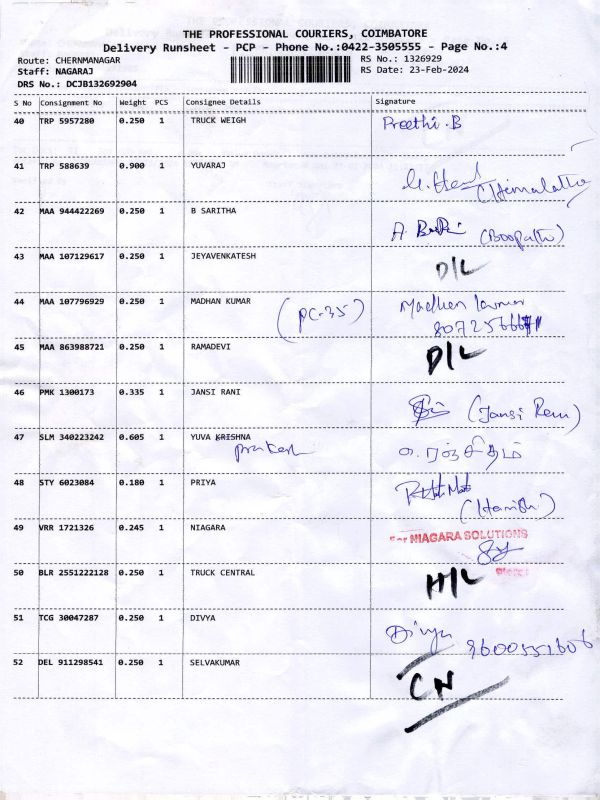 THE PROFESSIONAL COURIERS, COIMBATORE
Delivery Runsheet - PCP - Phone No.:0422-3505555 - Page No.:4
Route: CHERNMANAGAR RS No.: 1326929
Staff: NAGARAJ RS Date: 23-Feb-2024
DRS No.: DCJB132692904
S No Consignment No Weight PCS Consignee Details Signature
40 TRP 5957280 0.250 1 TRUCK WEIGH Preethi.B
41 TRP 588639 0.900 1 YUVARAJ (Himalatha
42 MAA 944422269 0.250 1 B SARITHA (Boopathi)
43 MAA 107129617 0.250 1 JEYAVENKATESH D/L
44 MAA 107796929 0.250 1 MADHAN KUMAR (PC-35) Madhan kumar
45 MAA 863988721 0.250 1 RAMADEVI D/L
46 PMK 1300173 0.335 1 JANSI RANI (Jansi Rani)
47 SLM 340223242 0.605 1 YUVA KRISHNA
prakash
48 STY 6023084 0.180 1 PRIYA
(Harish)
49 VRR 1721326 0.245 1 NIAGARA For NIAGARA SOLUTIONS
50 BLR 2551222128 0.250 1 TRUCK CENTRAL H/L
51 TCG 30047287 0.250 1 DIVYA Divya 9600551606
52 DEL 911298541 0.250 1 SELVAKUMAR CN